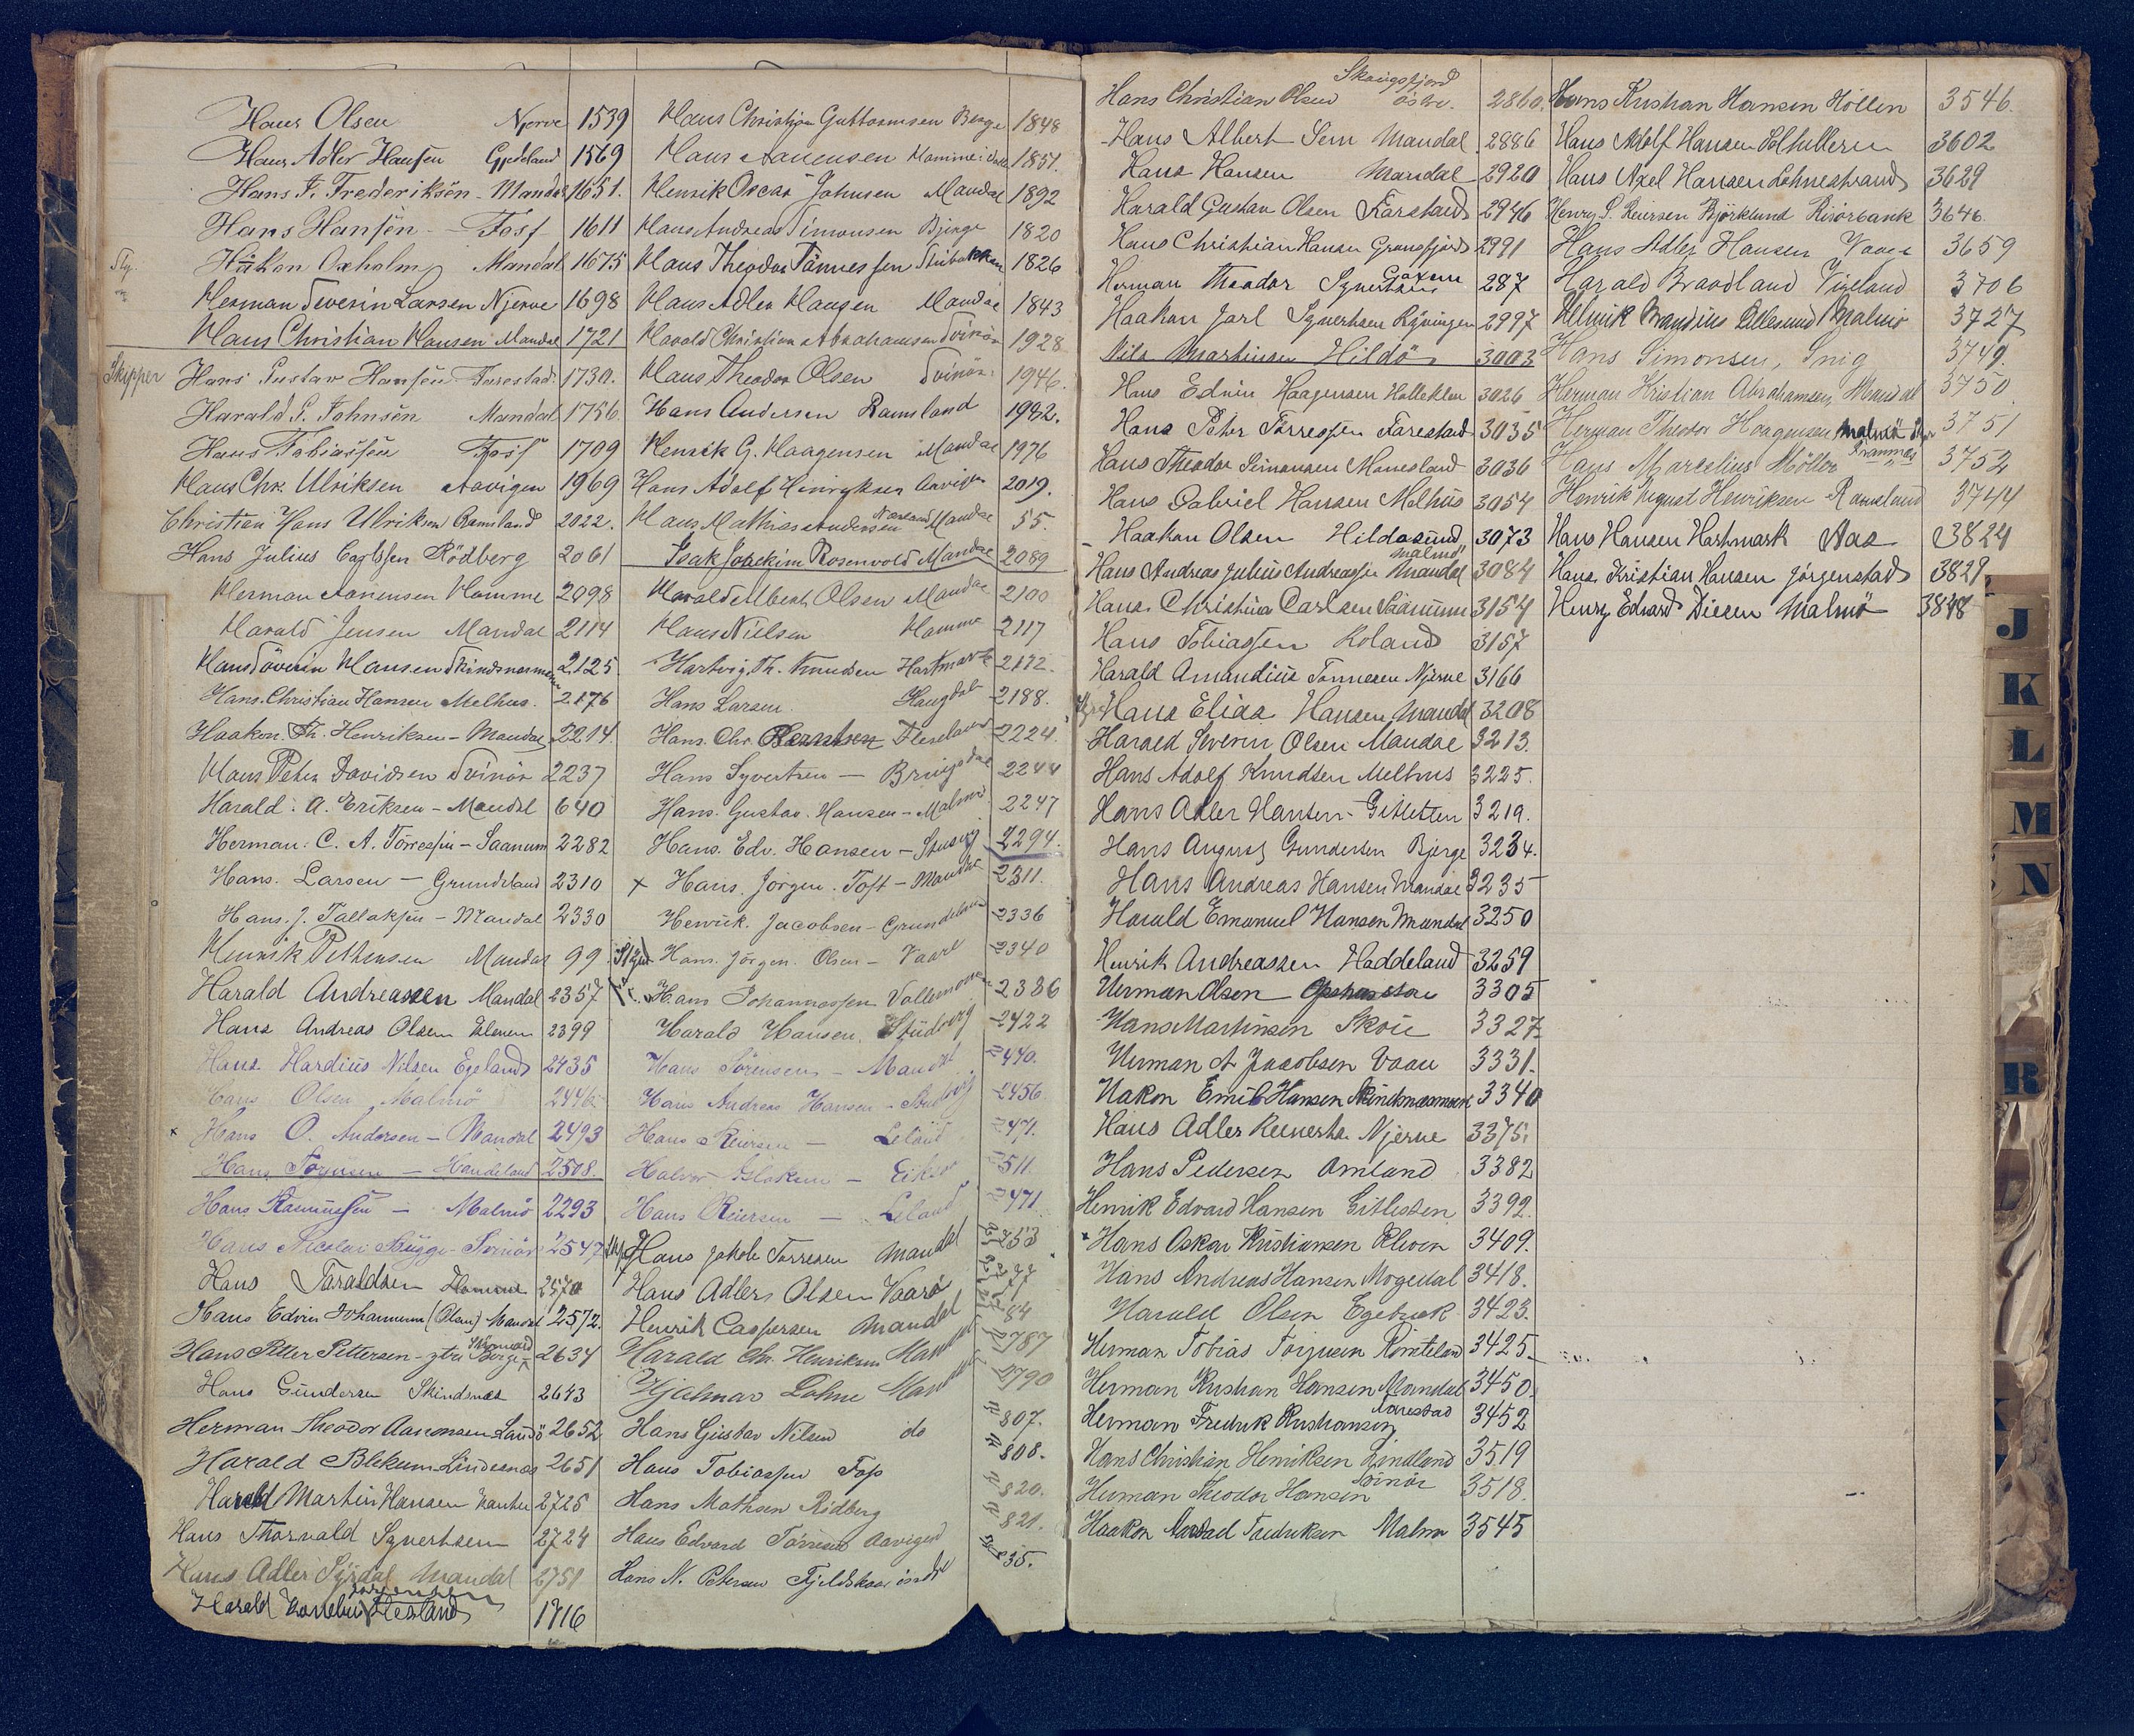 Hans Olsen Njerve 1539
Hans Adler Hansen Gjedeland 1569
Hans F. Frederiksen - Mandal 1651.
Hans Hansen - Foss 1611
Sty. Håkon Oxholm Mandal 1675
Herman Severin Larsen Njerve 1698
Hans Christian Hansen Mandal 1721
Skipper Hans Gustav Hansen Farestad 1730.
Harald S. Johnsen Mandal 1756
Hans Tobiassen Foss 1709
Hans Chr. Ulriksen Aavigen 1969
Christian Hans Ulriksen Ramsland 2022.
Hans Julius Carlssen Rödberg 2061
Herman Aanensen Homme 2098
Harald Jensen Mandal 2114
Hans Söverin Hansen Skindsnesmoen 2125
Hans Christian Hansen Melhus. 2176
Haakon Th. Henriksen - Mandal 2214
Hans Peter Davidsen Svinör 2237
Harald A. Eriksen - Mandal 640
Herman C. A. Törresen - Saanum 2282
Hans Larsen - Grundeland 2310
Hans J. Tallaksen - Mandal 2330
Henrik Pettersen Mandal 99
Harald Andreassen Mandal 2357
Hans Andreas Olsen Kleven 2399
Hans Hardius Nilsen Egeland 2435
Hans Olsen Malmö 2446
x Hans O. Andersen - Mandal 2493
Hans Torjusen - Haddeland 2508.
Hans Rasmussen - Malmö 2293
Hans Nicolai Bügge Svinör 2547
Hans Taraldsen Homme 2570
Hans Edvin Johannesen (Olsen) Mandal 2572.
Hans Petter Pettersen - ytre Bjerge 2634
Hans Gundersen Skindsnes 2643
Herman Theodor Aanonsen Landö 2652
Harald Blekum Lindesnes 2651
Harald Martin Hansen 2725
Hans Thorvald Syvertsen 2724
Hans Adler Syrdal Mandal 2751
Harald Flesland 1716
Hans Christian Guttormsen Berge 1848
Hans Aanensen Homme i 1851.
Henrik Oscar Johnsen Mandal 1892
Hans Andreas Simonsen Bjerge 1820
Hans Theodor Tönnessen Stubekken 1826
Hans Adler Hansen Mandal 1843
Harald Christian Abrahamsen Svinör 1928
Hans Theodor Olsen Svinör 1946.
Hans Andersen Ramsland 1982.
Henrik G. Haagensen Mandal 1976
Hans Adolf Hinryksen Aavigen 2019.
Hans Mathias Andersen Mandal 55.
Isak Joackim Rosenvold Mandal 2089
Harald Albert Olsen Mandal 2100
Hans Nielsen Homme 2117
Hartvig Th. Knudsen Hartmark 2172.
Hans Larsen. Haugdal 2188.
Hans Chr. Berntsen Flesland 2224.
Hans Syvertsen - Bringsdal 2244
Hans Gustav Hansen - Malmö 2247
Hans Edv. Hansen - Stusvig 2294.
x Hans Jörgen Toft - Mandal 2311.
Henrik Jacobsen - Grundeland 2336
Hans Jörgen Olsen - Vaare 2340
Hans Johannessen Vollemonen 2386
Harald Hansen. Stusvig 2422
Hans Sörensen - Mandal 2440.
Hans Andreas Hansen - Stusvig 2456
Hans Reiersen - Leland 2471.
Halvor Aslaksen - Eiken 2511
Hans Reiersen - Leland 2471
Hans Jakob Torresen Mandal 2753
Hans Adler Olsen Vaarö 2777
Henrik Caspersen Mandal 2784
Harald Chr. Henriksen Mandal 2787
Hjalmar Lohne Mandal 2790
Hans Gustav Nilsen do 2807.
Hans Tobiassen Foss 2808.
Hans Mathsen Rödberg 2820.
Hans Edvard Törresen Aavigen 2821.
Hans N. Petersen Fjeldskaar 2835.
Hans Christian Olsen Skougsfjord östre. 2860
Hans Albert Sem Mandal 2886
Hans Hansen Mandal 2920
Harald Gustav Olsen Farestad 2946
Hans Christian Hansen Grønsfjord 2991
Herman Theodor Syvertsen 287
Haakon Jarl Syvertsen Ryvingen 2997
Nils Martinsen Hildö 3003
Hans Edvin Haagensen Holleklev 3026
Hans Peter Törressen Farestad 3035
Hans Theodor Simonsen Mannesland 3036
Hans Gabriel Hansen Melhus 3054
Haakon Olsen Hildøsund 3073
Hans Andreas Julius Andreassen Malmö Mandal 3084
Hans Christian Carlsen Saanum 3154
Hans Tobiassen Roland 3157
Harald Amandius Tönnesen Njerve 3166
Hans Elias Hansen Mandal 3208
Harald Severin Olsen Mandal 3213.
Hans Adolf Knudsen Melhus 3225.
Hans Adler Hansen - Gitlesen 3219.
Hans August Gundersen Bjerge 3234.
Hans Andreas Hansen Mandal 3235
Harald Emanuel Hansen Mandal 3250
Henrik Andreassen Haddeland 3259
Herman Olsen 3305
Hans Martinsen Skoie 3327
Herman A Jacobsen Vaae 3331.
Hakon Emil Hansen Skindsnesmoen 3340
Hans Adler Reinertsen Njerve 3375.
Hans Pedersen Omland 3382
Henrik Edvard Hansen Gitlesen 3392
x Hans Oskar Kristiansen Kleven 3409.
Hans Andreas Hansen Mogedal 3418.
Harald Olsen Egebæk 3423.
Herman Tobias Torjusen Rømteland 3425
Herman Kristian Hansen Mandal 3450
Herman Fredrik Kristiansen Farestad 3452
Hans Christian Henriksen Lindland 3519
Herman Theodor Hansen Svinör 3518.
Haakon Fredriksen Malmö 3545
Hans Kristian Hansen Höllen 3546.
Hans Adolf Hansen 3602
Hans Axel Hansen Lohnestrand 3629
Henry S. Reiersen Björklund Risörbank 3646.
Hans Adler Hansen Vaage 3659
Harald Braadland Vigeland 3706
Henrik Mandius Ellesund Malmö 3727
Hans Simonsen, Snig 3749.
Herman Kristian Abrahamsen, Mandal 3750
Herman Theodor Haagensen Malmö 3751
Hans Marselius Möller Kranmes 3752
Henrik August Henriksen Ramsland 3744
Hans Hansen Hartmark Aas 3824
Hans Kristian Hansen Jörgenstad 3829
Henry Edvard Diesen Malmö 3848
J
K
L
M
N
R